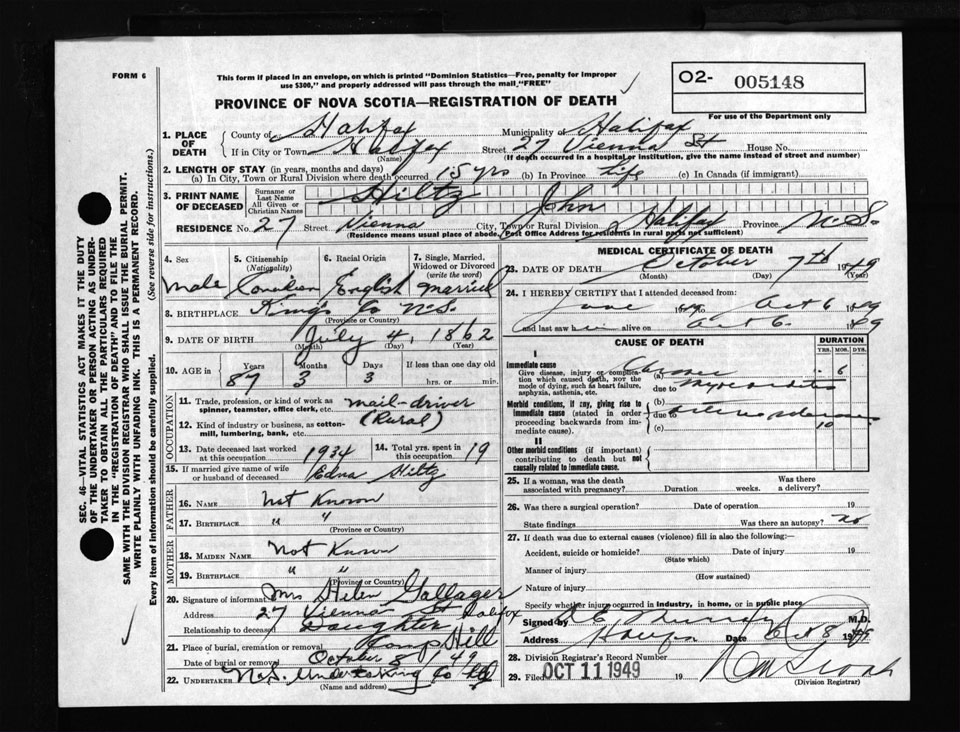 FORM 6
This form if placed in an envelope, on which is printed "Dominion Statistics—Free, penalty for improper
use $300," and properly addressed will pass through the mail "FREE"
O2- 005148
PROVINCE OF NOVA SCOTIA—REGISTRATION OF DEATH
For use of the Department only
1. PLACE OF DEATH
County of Halifax Municipality of Halifax
If in City or Town Halifax Street 27 Vienna St House No.
(Name) (If death occurred in a hospital or institution, give the name instead of street and number)
2. LENGTH OF STAY (in years, months and days)
(a) In City, Town or Rural Division where death occurred 15 yrs (b) In Province Life (c) In Canada (if immigrant)
3. PRINT NAME OF DECEASED
Surname or Last Name Hiltz
All Given or Christian Names John
RESIDENCE No. 27 Street Vienna City, Town or Rural Division Halifax Province N.S.
(Residence means usual place of abode. Post Office Address for residents in rural parts not sufficient)
4. Sex
male
5. Citizenship
(Nationality)
Canadian
6. Racial Origin
English
7. Single, Married, Widowed or Divorced
(write the word)
married
8. BIRTHPLACE Kings Co N.S.
(Province or Country)
9. DATE OF BIRTH July 4, 1862
(Month) (Day) (Year)
10. AGE in Years Months Days If less than one day
87 3 3 hrs. or min.
OCCUPATION
11. Trade, profession, or kind of work as spinner, teamster, office clerk, etc. mail-driver
12. Kind of industry or business, as cotton-mill, lumbering, bank, etc. (Rural)
13. Date deceased last worked at this occupation 1934
14. Total yrs. spent in this occupation 19
15. If married give name of wife or husband of deceased Edna Hiltz
FATHER
16. NAME Not Known
17. BIRTHPLACE " "
(Province or Country)
MOTHER
18. MAIDEN NAME Not Known
19. BIRTHPLACE " "
(Province or Country)
20. Signature of informant Mrs Helen Gallager
Address 27 Vienna St Halifax
Relationship to deceased Daughter
21. Place of burial, cremation or removal Camp Hill
Date of burial or removal October 8, 49
22. UNDERTAKER N.S. Undertaking Co Ltd
(Name and address)
MEDICAL CERTIFICATE OF DEATH
23. DATE OF DEATH October 7th 1949
(Month) (Day) (Year)
24. I HEREBY CERTIFY that I attended deceased from:
June 1949 Oct 6 1949
and last saw him alive on Oct 6. 1949
CAUSE OF DEATH
DURATION
YRS. MOS. DYS.
I
Immediate cause
Give disease, injury or complication which caused death, nor the mode of dying, such as heart failure, asphyxia, asthenia, etc.
(a) Chronic 6
due to myocarditis
Morbid conditions, if any, giving rise to immediate cause (stated in order proceeding backwards from immediate cause).
(b)
due to arteriosclerosis
(c) 10
II
Other morbid conditions (if important) contributing to death but not causally related to immediate cause.
25. If a woman, was the death associated with pregnancy? Duration weeks. Was there a delivery?
26. Was there a surgical operation? Date of operation 19
State findings Was there an autopsy? no
27. If death was due to external causes (violence) fill in also the following:—
Accident, suicide or homicide? Date of injury 19
(State which)
Manner of injury
(How sustained)
Nature of injury
Specify whether injury occurred in industry, in home, or in public place
Signed by M.D.
Address Halifax Date Oct 8 1949
28. Division Registrar's Record Number
29. Filed OCT 11 1949 19
(Division Registrar)
SEC. 46—VITAL STATISTICS ACT MAKES IT THE DUTY
OF THE UNDERTAKER OR PERSON ACTING AS UNDER-
TAKER TO OBTAIN ALL THE PARTICULARS REQUIRED
IN THE "REGISTRATION OF DEATH" AND TO FILE THE
SAME WITH THE DIVISION REGISTRAR WHO SHALL ISSUE THE BURIAL PERMIT.
WRITE PLAINLY WITH UNFADING INK. THIS IS A PERMANENT RECORD.
Every item of information should be carefully supplied. (See reverse side for instructions.)